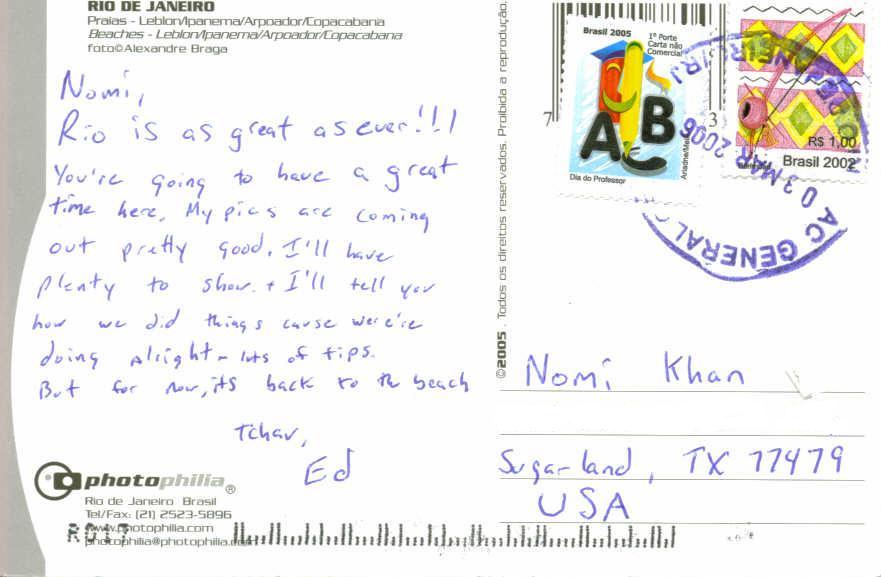 RIO DE JANEIRO
Praias - Leblon/Ipanema/Arpoador/Copacabana
Beaches - Leblon/Ipanema/Arpoador/Copacabana
foto©Alexandre Braga
Nomi,
Rio is as great as ever!!!
You're going to have a great
time here. My pics are coming
out pretty good. I'll have
plenty to show. + I'll tell you
how we did things cause we're're
doing alright - lots of tips.
But for now, it's back to the beach
Tchau,
Ed
photophilia®
Rio de Janeiro Brasil
Tel/Fax: (21) 2523-5896
www.photophilia.com
photophilia@photophilia.com
©2005 . Todos os direitos reservados. Proibida a reprodução.
7
3
Brasil 2005
1º Porte
Carta não
Comercial
ABC
Dia do Professor
R$ 1,00
Brasil 2002
AC GENERAL
03 MAR 2006
Nomi Khan
Sugar land, TX 77479
USA